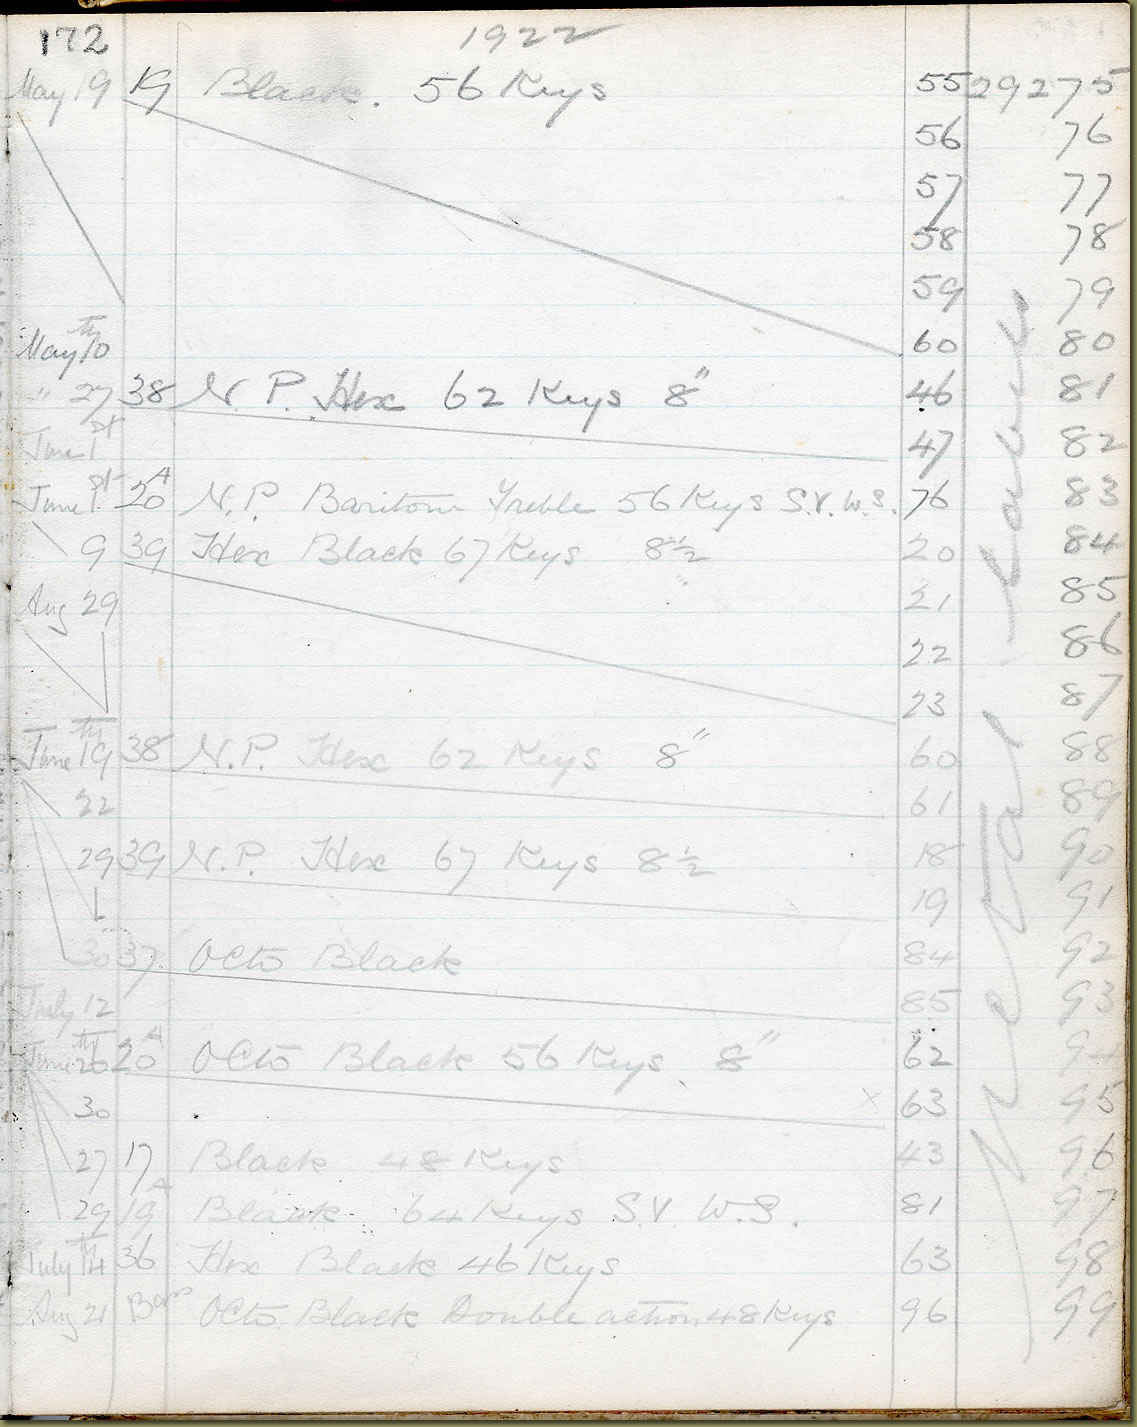 172 1922
May 19 19 Black. 56 Keys 55 29275
56 76
57 77
58 78
59 79
May 10th 60 80
" 27 38 N. P. Hex 62 Keys 8" 46 81
June 1st 47 82
June 1st 20A N.P. Baritone Treble 56 Keys S.V. W.S. 76 83
9 39 Hex Black 67 Keys 8½" 20 84
Aug 29 21 85
22 86
23 87
June 19th 38 N.P. Hex 62 Keys 8" 60 88
22 61 89
29 39 N.P. Hex 67 Keys 8½ 18 90
19 91
30 37 Octo Black 84 92
July 12 85 93
June 20th 20A Octo Black 56 Keys 8" 62 94
30 x 63 95
27 17 Black 48 Keys 43 96
29 19A Black 64 Keys S.V. W.S. 81 97
July 14th 36 Hex Black 46 Keys 63 98
Aug 21 Octo Black Double action 48 Keys 96 99
New